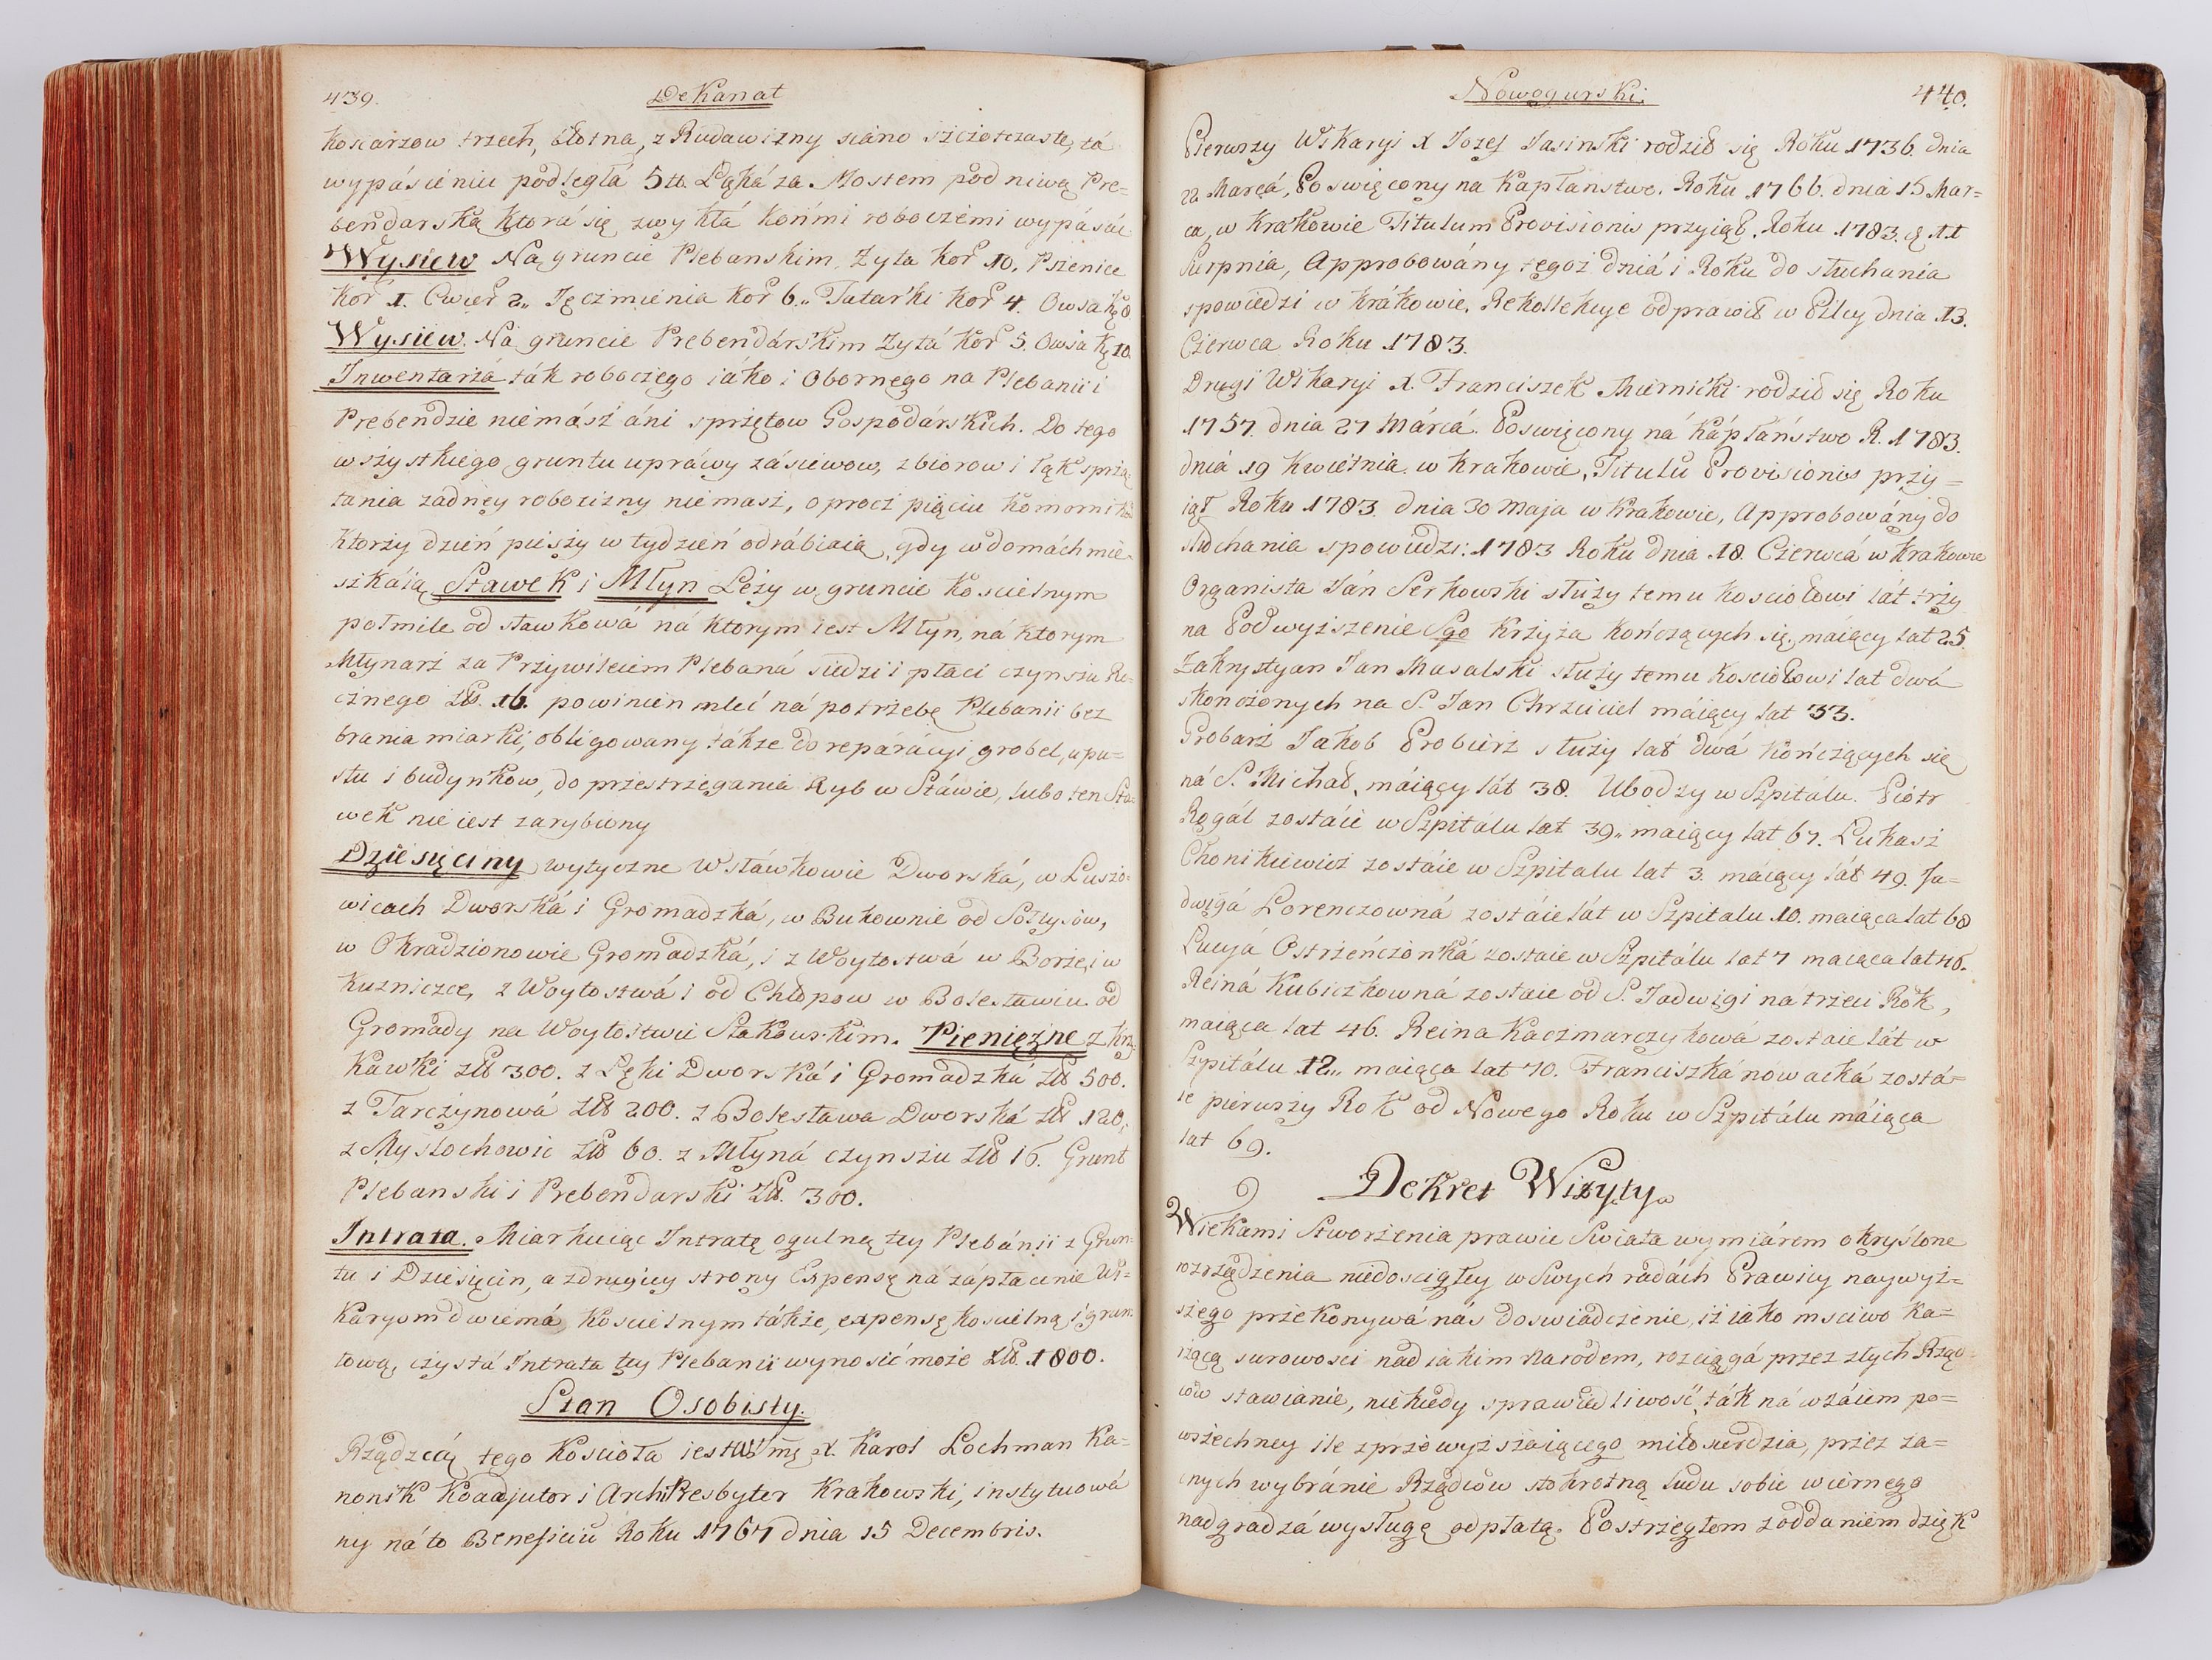 439.
Dekanat
kosiarzow trzech, błotna, z Rudawizny siano szczotczaste, ta
wypásieniu podległá 5ta Łąká za Mostem pod niwą Pre=
bendarską ktorá się zwykłá końmi roboczemi wypásáć
Wysiew Na gruncie Plebanskim Zyta kor 10. Pszenice
Kor 1. Cwier 2,, Jęczmienia kor 6,, Tatarki kor 4. Owsa K 8
Wysiew. Ná gruncie Prebendárskim Zytá kor 5. Owsa K 10.
Inwentarza ták roboczego iáko i Obornego na Plebanii i
Prebendzie niemász áni sprzętow Gospodárskich. Do tego
wszystkiego gruntu uprawy zásiewow, zbiorow i łąk sprzą
tania zadney robocizny niemasz, oprocz pięciu komornik
Ktorzy dzień pieszy w tydzień odrábiaią, gdy w domách mie=
szkáią Stawek i Młyn Leży w gruncie koscielnym
połmile od stawkowá ná ktorym iest Młyn, ná ktorym
Młynarz za Przywileiem Plebaná siedzi i płaci czynszu Ro=
cznego Zł. 16. powinien mleć ná potrzebę Plebanii bez
brania miarki, obligowany tákze do reparácyi grobel, upu=
stu i budynkow, do przestrzegania Ryb w Stáwie, lubo ten Sta=
wek nie iest zarybiony
Dziesięciny wytyczne W stáwkowie Dworská, w Luszo=
wicach Dworská i Gromadzká, w Bukownie od Sołtysów,
w Okradzionowie Gromadzká, i z Woytostwá w Borze, i w
Kuzniczce, z Woytostwá i od Chłopow w Bolesławiu od
Gromady na Woytostwie Stakowskim. Pieniężne z Krz=
kawki zł 300. z Łęki Dworská i Gromadzká Zł 500.
z Tarczynowá Zł 200. z Bolesława Dworská Zł 120.
z Mysłochowic Zł 60. z Młyná czynszu Zł 16. Grunt
Plebanski i Prebendarski Zł. 300.
Intrata. Miarkuiąc Intratę ogulną tey Plebánii z Grun=
tu i Dziesięcin, a z drugiey strony Expensę ná zápłacenie Wi=
karyom dwiemá, Koscielnym tákże, expensę koscielną i grun=
tową, czystá Intrata tey Plebanii wynosić może Zł. 1800.
Stan Osobisty.
Rządzcą tego Koscioła iest X. Karol Lochman Ka=
nonik Koadjutor i ArchiPresbyter Krakowski, instytuowá
ny ná to Beneficiu Roku 1767 dnia 15 Decembris.
Nowogurski.
440.
Pierwszy Wikaryi X Jozef Jasinski rodził się Roku 1736. dnia
22 Marcá, Poswięcony na Kapłanstwo. Roku 1766. dnia 15 Mar=
ca, w Krakowie Titulum Provisionis przyiął. Roku 1783. d 11
Sierpnia, Approbowány tegoż dniá i Roku do słuchania
spowiedzi w krákowie. Rekollekcye odprawił w Pilcy dnia 13.
Czerwca Roku 1783.
Drugi Wikaryi X. Franciszek Miernicki rodził się Roku
1757. dnia 27 Márcá. Poswięcony ná Kápłáństwo R. 1783.
dniá 19 Kwietnia. w Krakowie, Titulu Provisionis przy=
iął Roku 1783. dnia 30 Maja w Krakowie, Approbowány do
słuchania spowiedzi: 1783 Roku dnia 18. Czerwcá w Krakowie
Organista Ján Serkowski służy temu kosciołowi lát trzy
na Podwyższenie Sgo Krzyża kończących się, máiący lat 25.
Zakrystyan Jan Musalski służy temu kosciołowi lat dwá
skończonych na S. Jan Chrzciciel máiący lat 33.
Grobarz Jakob Probierz służy lat dwá kończących się
ná S. Michał, máiący lát 38. Ubodzy w Szpitalu. Piotr
Rogál zostáie w Szpitálu lat 39,, maiący lat 67. Łukasz
Chonikiewicz zostáie w Szpitalu lat 3. máiący lát 49. Ja=
dwigá Lorenczowná zostáie lát w Szpitalu 10. maiąca lat 68
Lucyá Ostrzeńczonká zostaie w Szpitálu lat 7 maiąca lat 46.
Reiná Kubiczkowná zostaie od S. Jadwigi ná trzeci Rok,
maiąca lat 46. Reina Kaczmarczykowá zostaie lát w
Szpitálu 12,, maiąca lat 70. Franciszká nowacká zostá=
ie pierwszy Rok od Nowego Roku w Szpitálu máiąca
lat 69.
Dekret Wizyty
Wiekami Stworzenia prawie Swiata wymiárem okryslone
rozrządzenia niedoscigłey w Swych radách Prawicy naywyż=
szego przekonywá nás doswiadczenie, iż iako msciwo ka=
rzącą surowosci nad iakim Narodem, rozciągá przez złych Rząd=
ców stawianie, niekiedy sprawiedliwość, ták ná wzáiem po=
wszechney ile zprzewyższaiącego miłosierdzia, przez za=
cnych wybránie Rządców stokrotną ludu sobie wiernego
nadgradzá wysługę odpłatą. Postrzegłem z oddaniem dzięk